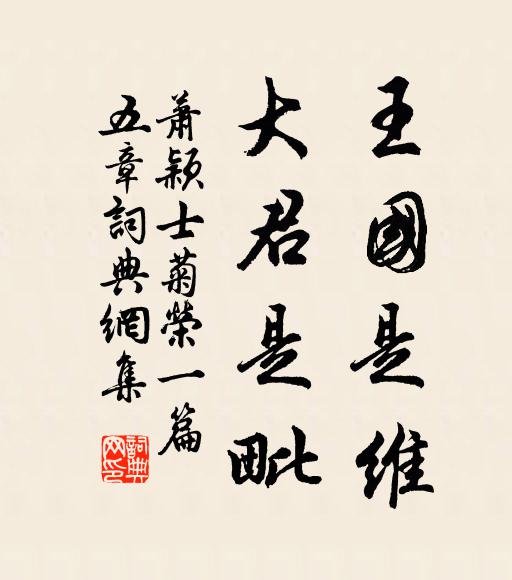 王國是維
大君是毗
蕭颖士菊榮一篇
五章詞典網集
詞典网印